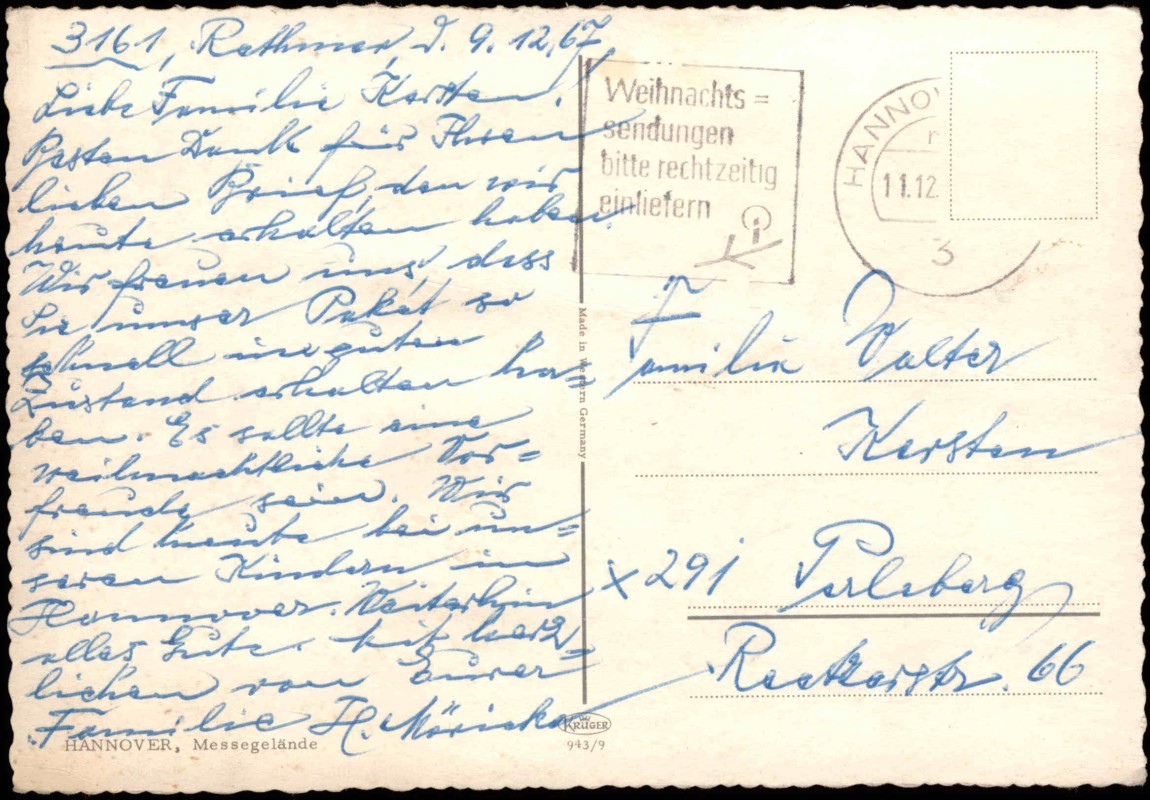 3161, Rethmar, d. 9.12.67
Liebe Familie Kersten!
Besten Dank für Ihren
lieben Brief, den wir
heute erhalten haben.
Wir freuen uns, dass
Sie unser Paket so
schnell in guten
Zustand erhalten ha-
ben. Es sollte eine
weihnachtliche Vor=
freude sein. Wir
sind heute bei un=
seren Kindern in
Hannover. Weiterhin
alles Gute. Mit herz=
lichen von Eurer
Familie H.
HANNOVER, Messegelände
Made in Western Germany
KRÜGER
943/9
Weihnachts=
sendungen
bitte rechtzeitig
einliefern
HANNOV
11.12
3
Familie Walter
Kersten
x 291 Perleberg
66